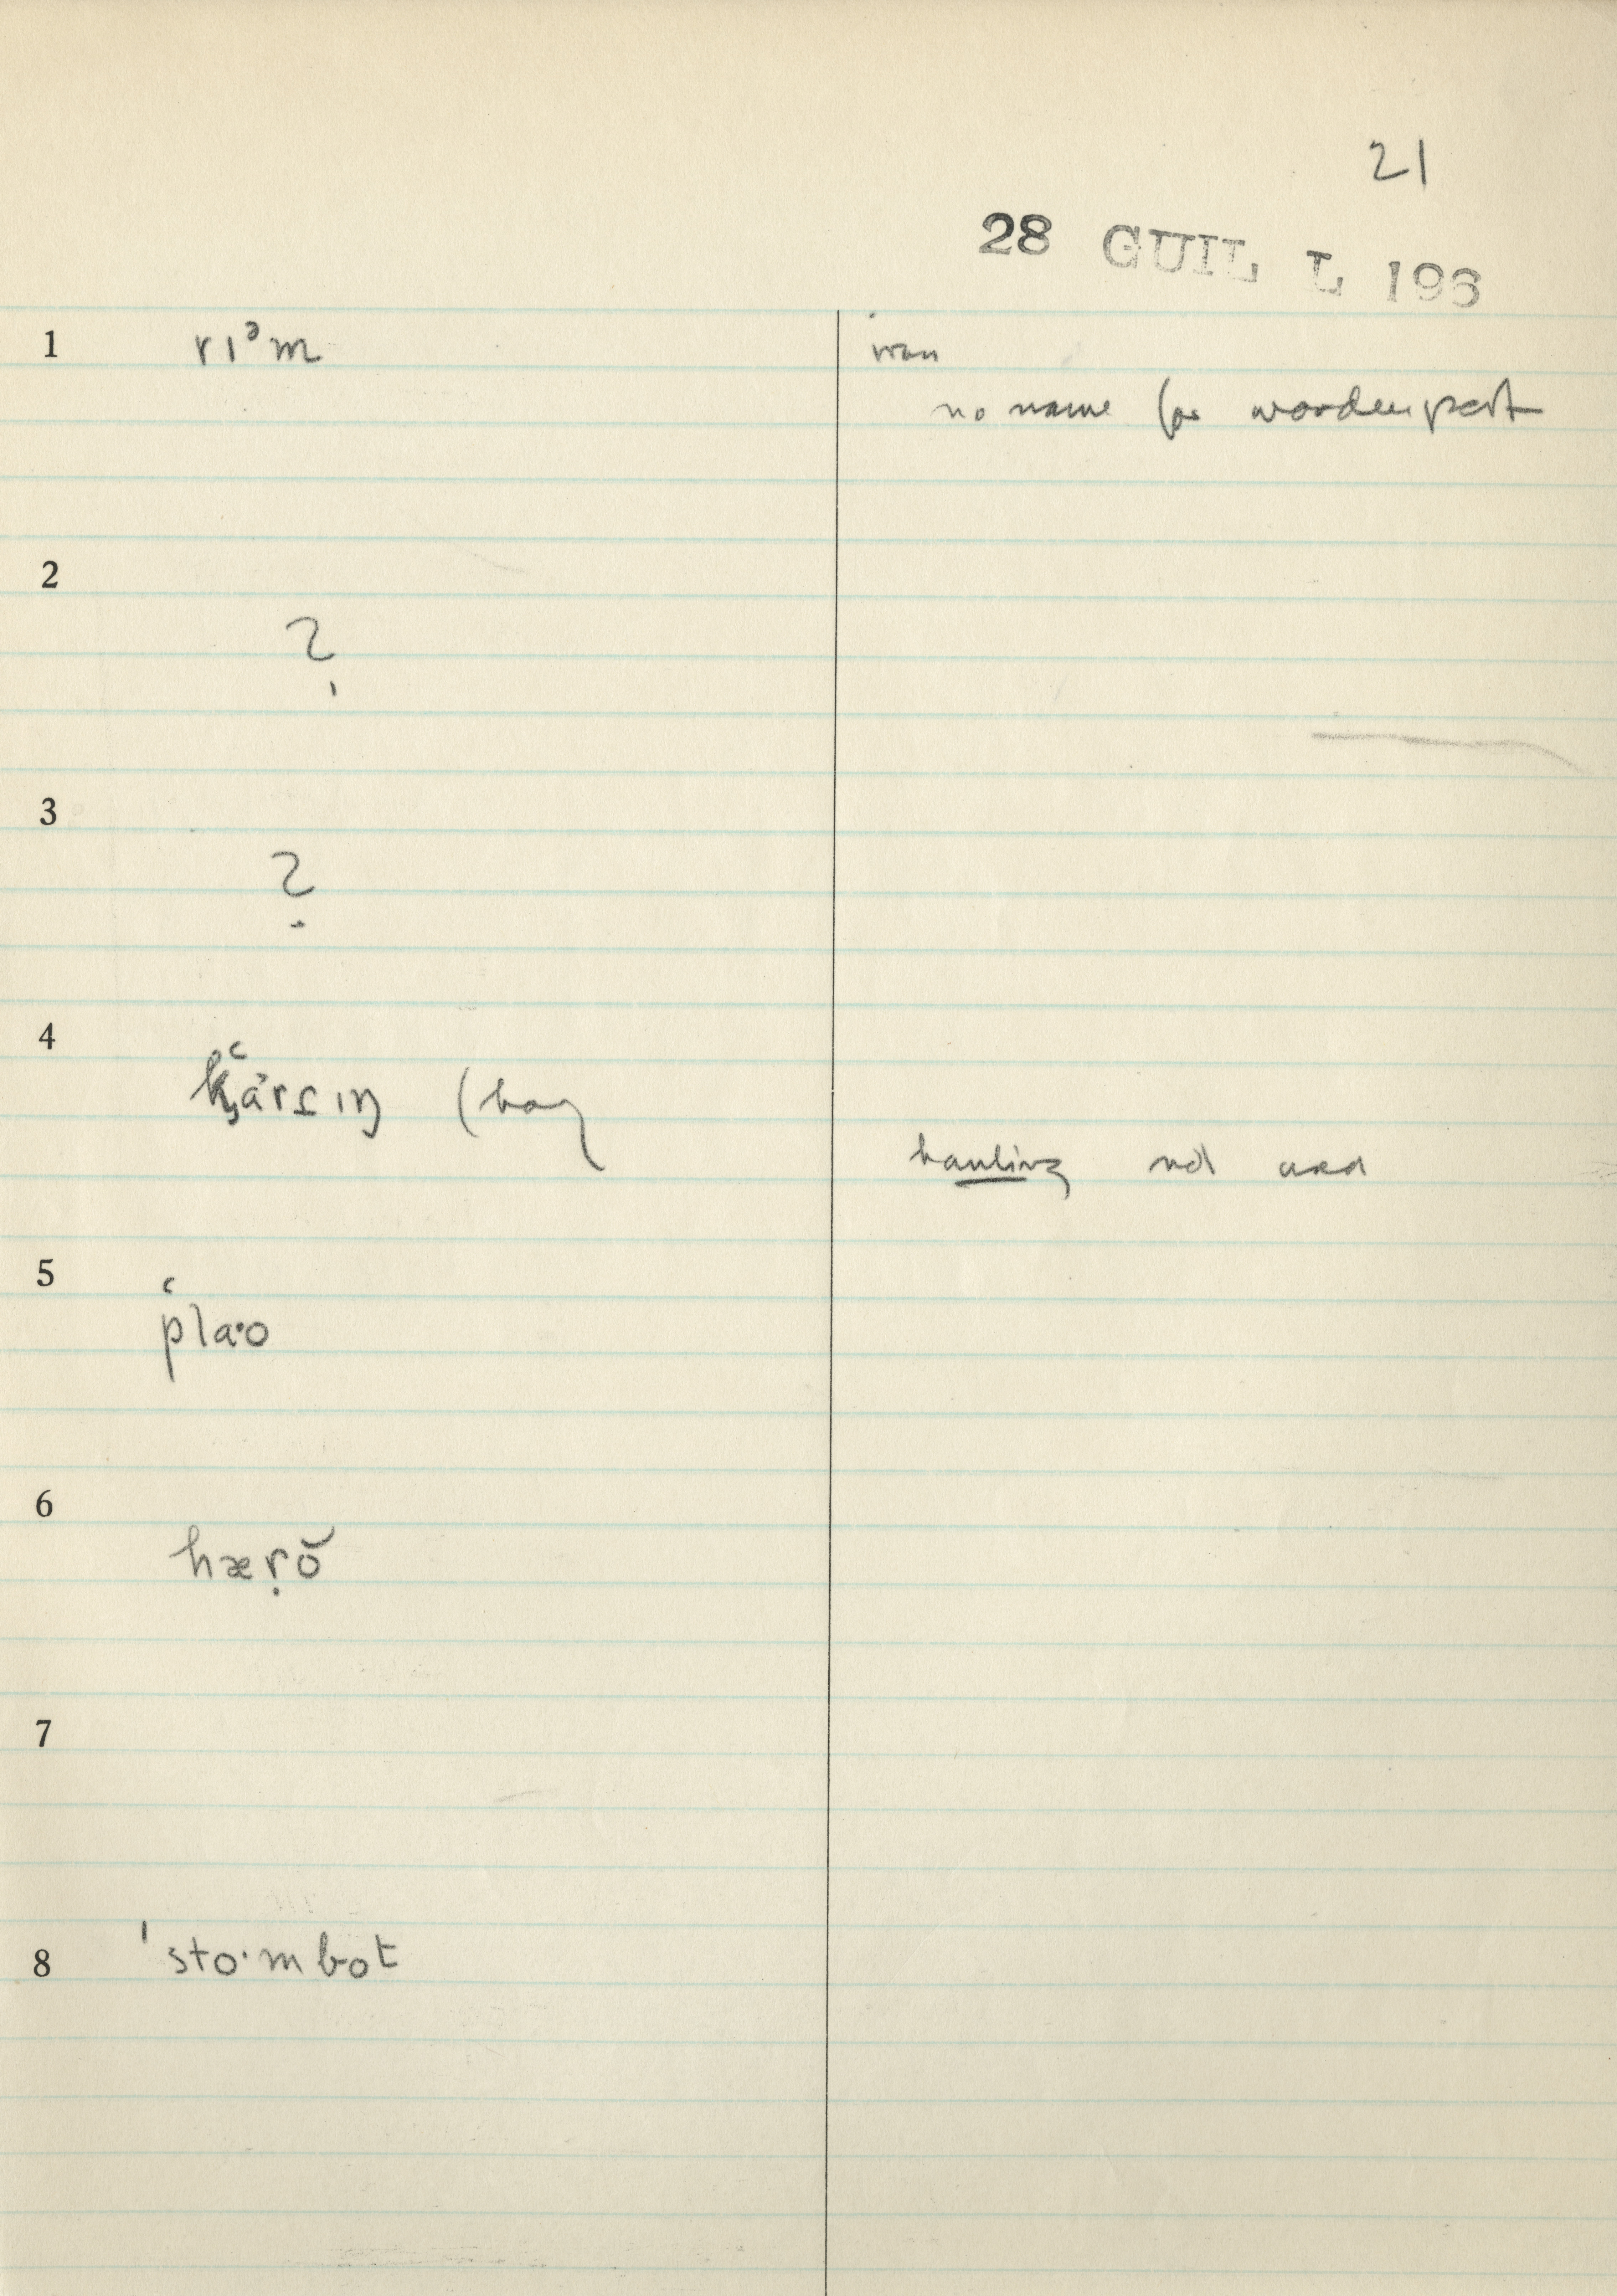 21
28 GUIL L 193
1 rɪᵊm
iron
no name for wooden part
2 ?
3 ?
4 (hay
hauling not used
5 p‘la·o
6 hærọ̆
7
8 'sto·mbot